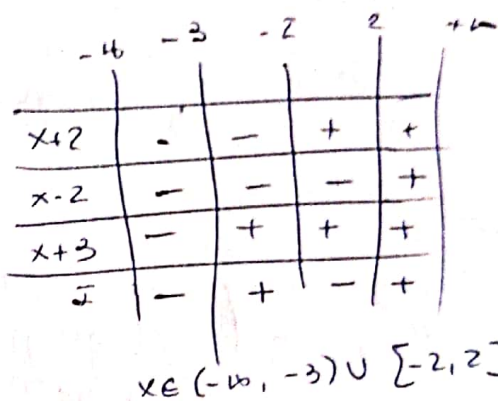 -∞ -3 -2 2 +∞
x+2 - - + +
x-2 - - - +
x+3 - + + +
I - + - +
x∈ (-∞, -3) ∪ [-2, 2]